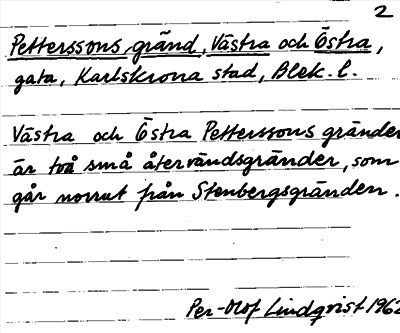 2
Petterssons gränd, Västra och Östra,
gata, Karlskrona stad, Blek. l.
Västra och Östra Petterssons gränder
är två små återvändsgränder, som
går norrut från Stenbergsgränden.
Per-Olof Lindqvist 1962